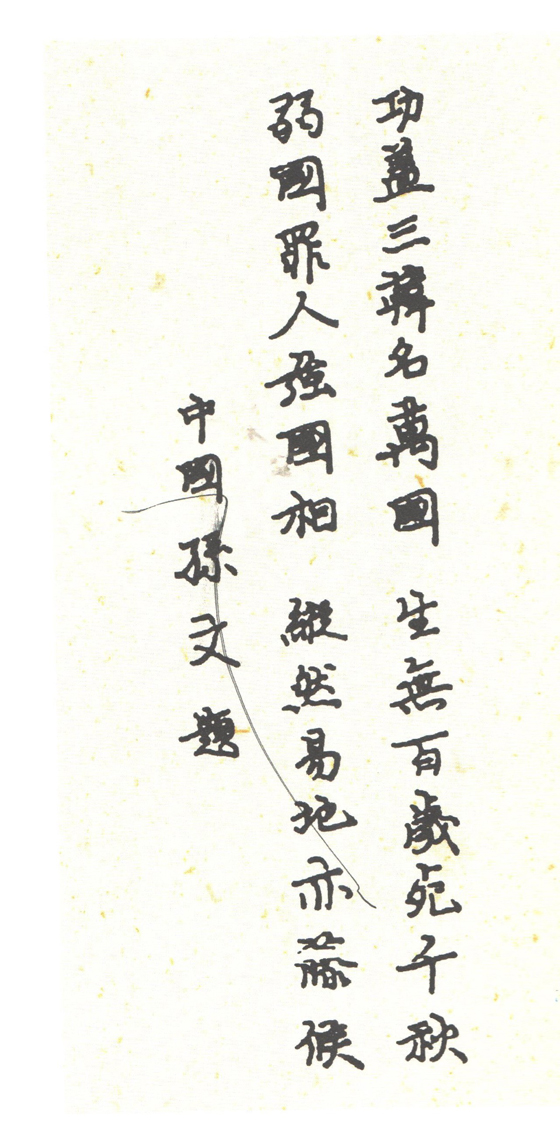 功蓋三韓名萬國 生無百歲死千秋
弱國罪人強國相 縱然易地亦藤候
中國 孫文 題